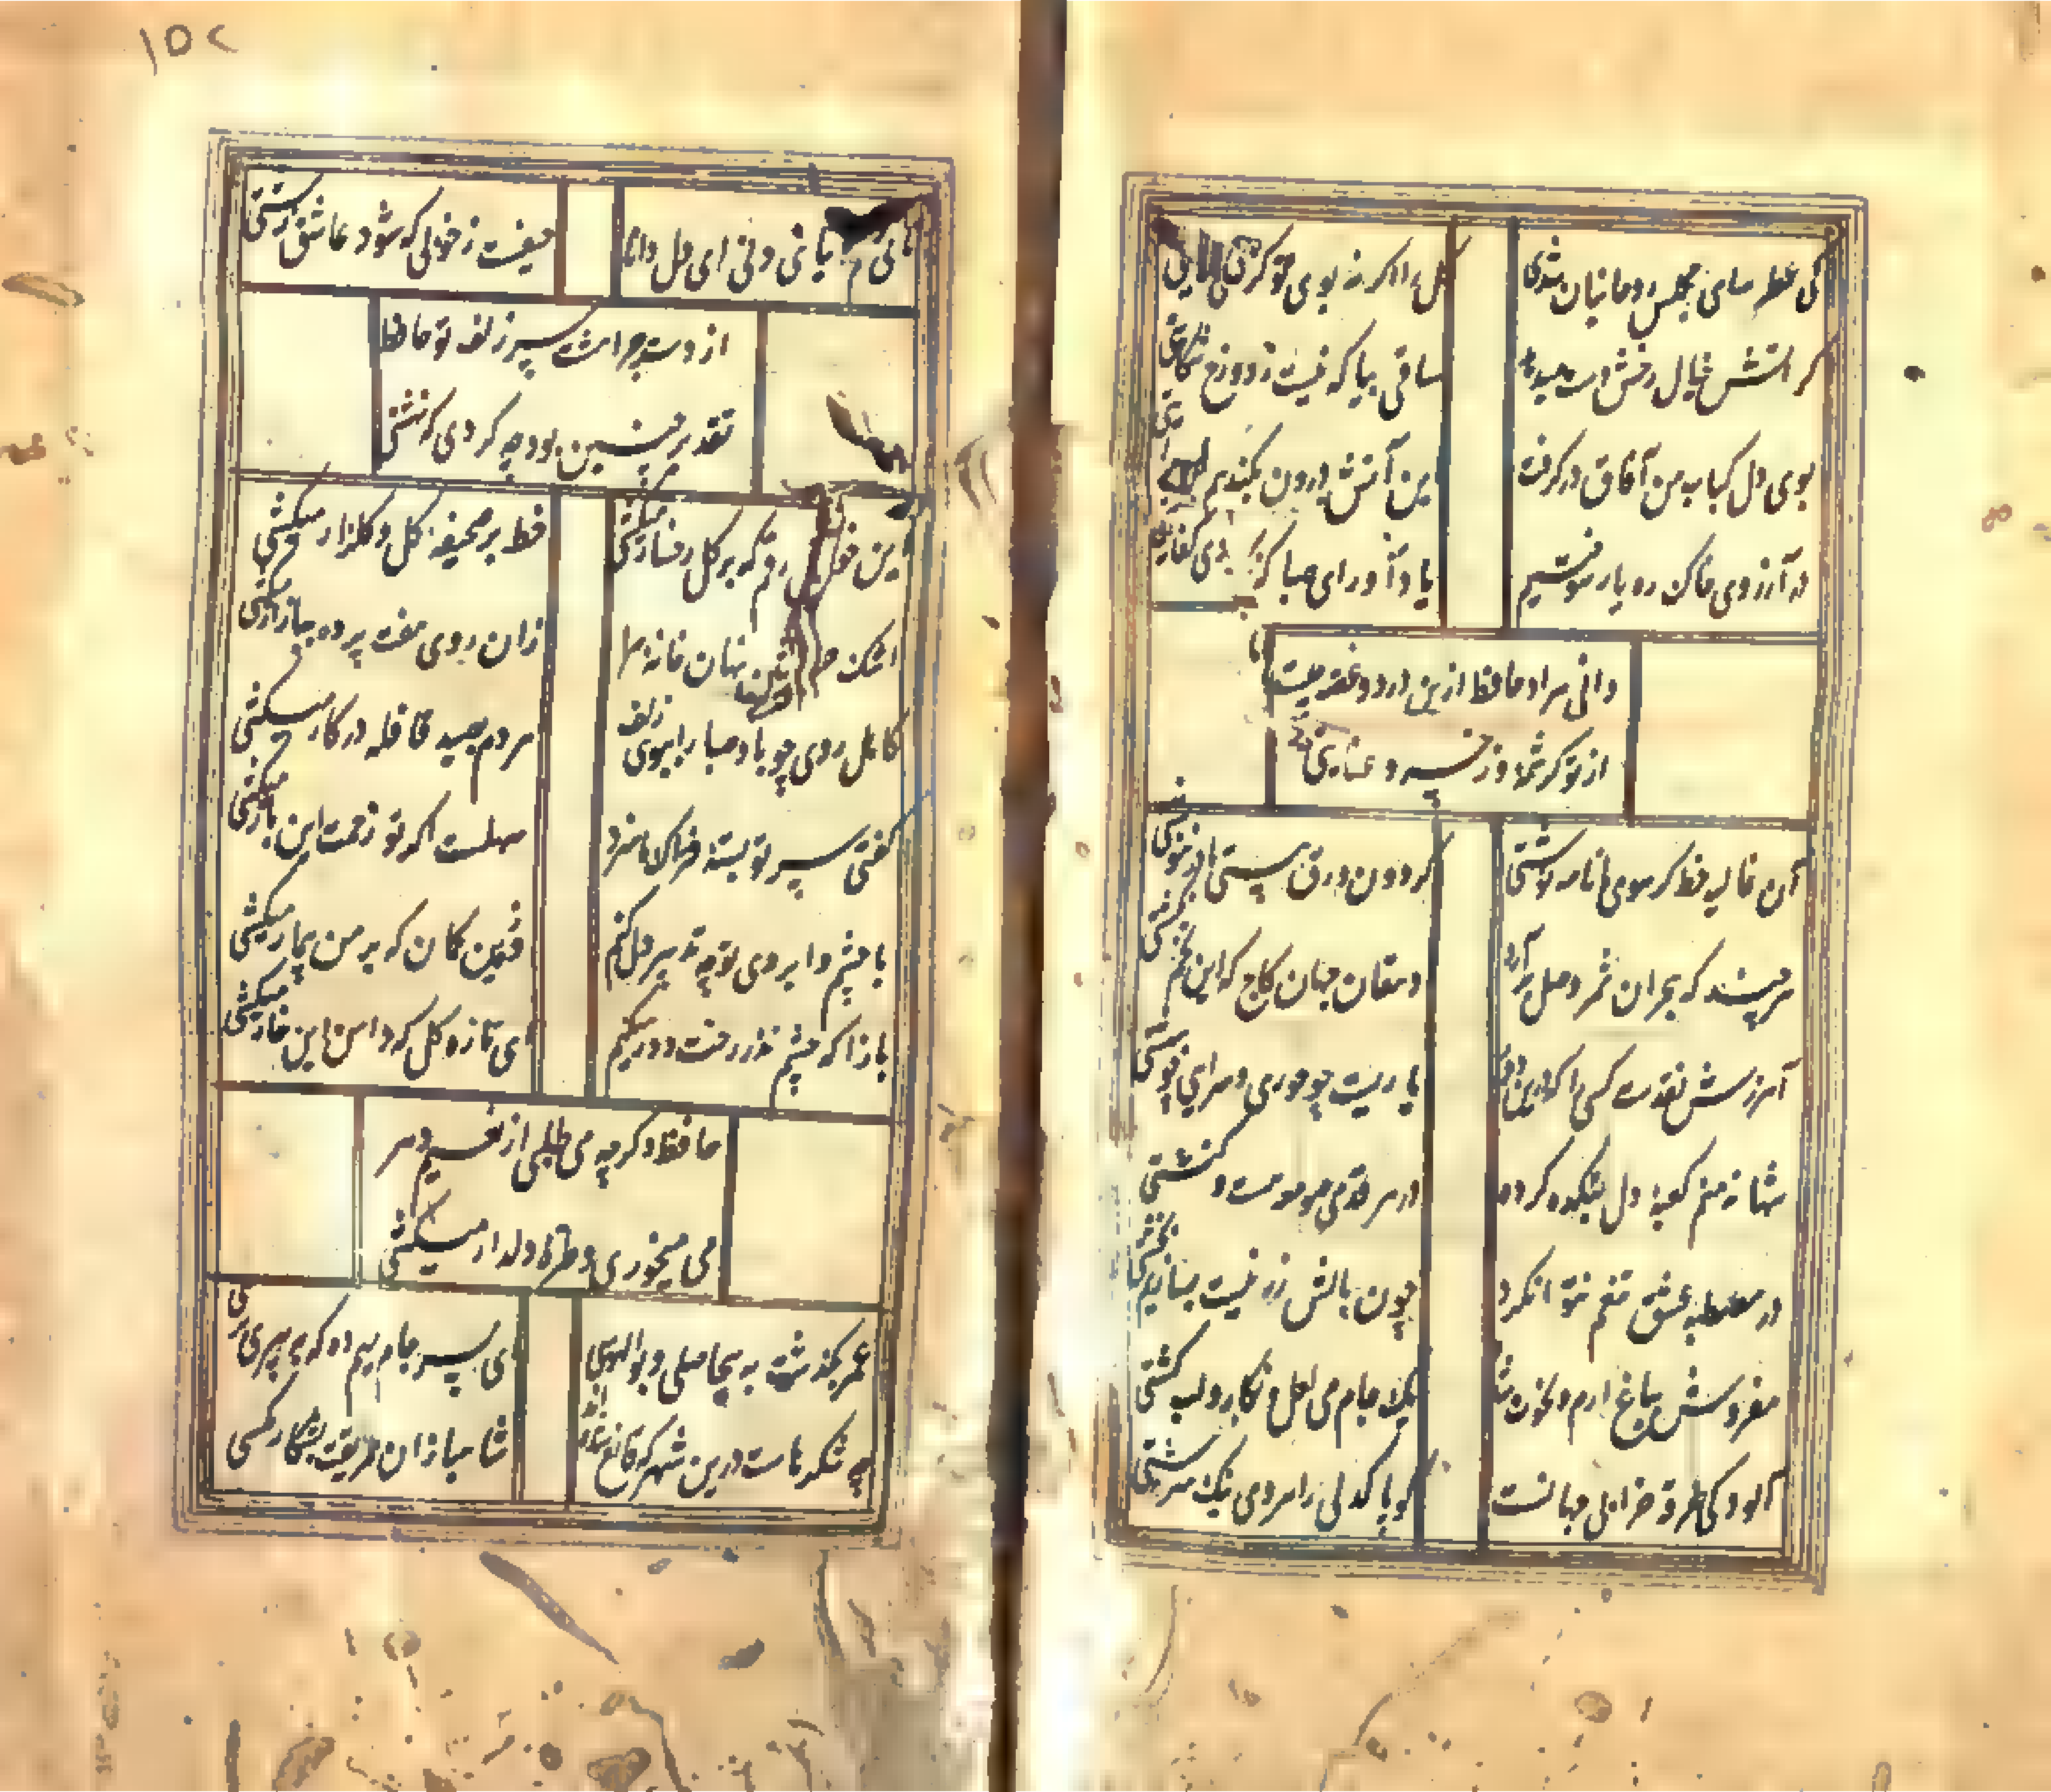 کی عطر سای مجلس روحانیان شدی
گل را اگر نه بوی تو کردی
گر آتش خیال رخش دست میدهد
ساقی بیا که نیست ز دوزخ شکایتی
بوی دل کباب من آفاق در گرفت
این آتش درون بکند هم
در آرزوی خاک ره یار سوختیم
یاد آور ای صبا که
دانی مراد حافظ ازین درد و غصه چیست
از تو کرشمه و ز خسرو عنایتی
آن غالیه خط گر سوی ما نامه نوشتی
گردون ورق هستی ما در ننوشتی
هر چند که هجران ثمر وصل برآرد
دهقان جهان کاج که این تخم نکشتی
آمرزش نقدست کسی را که درین
یاریست چو حوری و سرایی چو بهشتی
تنها نه منم کعبه دل بتکده کرده
در هر قدمی صومعه هست و کنشتی
در مصطبه عشق تنعم نتوان کرد
چون بالش زر نیست بسازیم بخشتی
مفروش بباغ ارم و نخوت شداد
یک جام می لعل و نگار و لب کشتی
آلودگی خرقه خرابی جهانست
کو پاکدلی راهروی نیک سرشتی
تا کی غم دنیای دنی ای دل دانا
حیفست ز خوبی که شود عاشق زشتی
از دست چرا هشت سر زلف تو حافظ
تقدیر چنین بود چه کردی که نهشتی
این خط رقم که بر گل رخسار میکشی
خط بر صحیفه گل و گلزار میکشی
اشک حرم نشین نهان خانه مرا
زان روی هفت پرده ببازار میکشی
کاهل روی چو باد صبا را ببوی زلف
هر دم بصید قافله در کار میکشی
گفتی سر تو بسته فتراک ما سزد
سهلست اگر تو زحمت این بار میکشی
با چشم و ابروی تو چه تدبیر دل کنم
قوین کمان که بر من بیمار میکشی
بازآ که چشم بد ز رخت دور میکنم
ای تازه گل که دامن ازین خار میکشی
حافظ دگر چه می طلبی از نعیم دهر
می میخوری و طره دلدار میکشی
عمر بگذشت به بیحاصلی و بوالهوسی
ای پسر جام میم ده که به پیری برسی
چه شکرهاست درین شهر که قانع شده‌اند
شاهبازان طریقت بشکار مگسی
۱۵۲